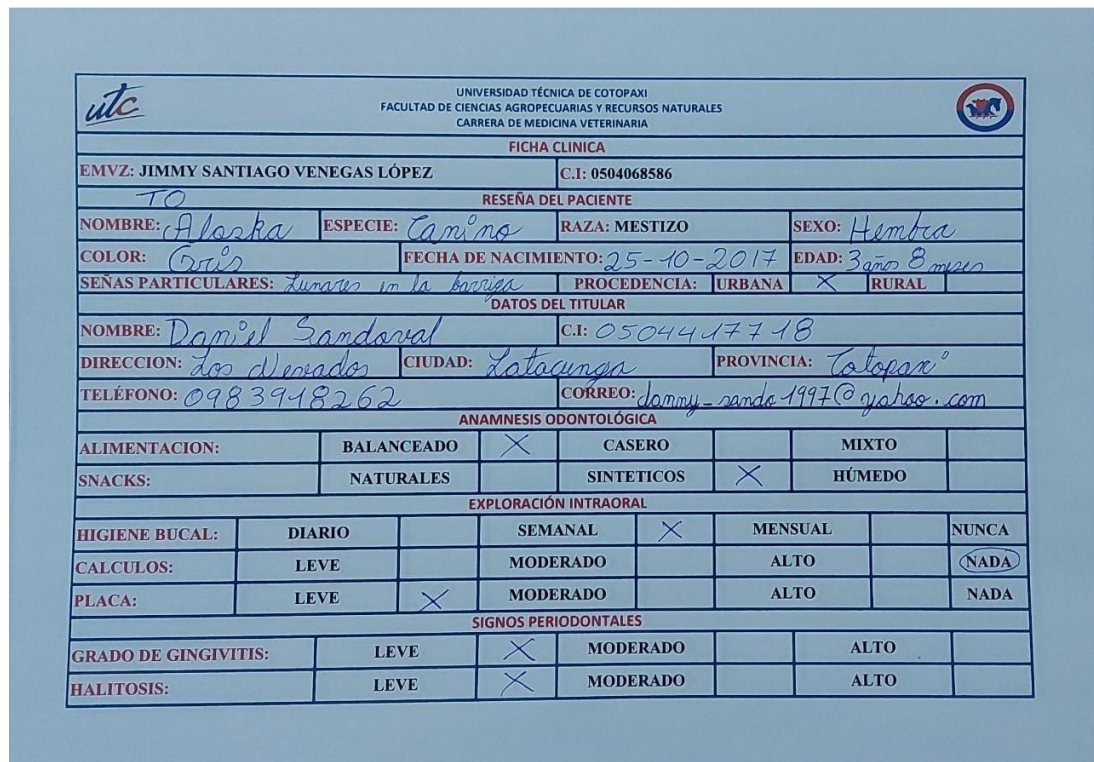 utc
UNIVERSIDAD TÉCNICA DE COTOPAXI
FACULTAD DE CIENCIAS AGROPECUARIAS Y RECURSOS NATURALES
CARRERA DE MEDICINA VETERINARIA
FICHA CLINICA
EMVZ: JIMMY SANTIAGO VENEGAS LÓPEZ C.I: 0504068586
TO RESEÑA DEL PACIENTE
NOMBRE: Alaska ESPECIE: Canino RAZA: MESTIZO SEXO: Hembra
COLOR: Gris FECHA DE NACIMIENTO: 25-10-2017 EDAD: 3 años 8 meses
SEÑAS PARTICULARES: Lunares en la barriga PROCEDENCIA: URBANA X RURAL
DATOS DEL TITULAR
NOMBRE: Daniel Sandoval C.I: 0504417718
DIRECCION: Los Nevados CIUDAD: Latacunga PROVINCIA: Cotopaxi
TELÉFONO: 0983948262 CORREO: danny_sando1997@yahoo.com
ANAMNESIS ODONTOLÓGICA
ALIMENTACION: BALANCEADO X CASERO MIXTO
SNACKS: NATURALES SINTETICOS X HÚMEDO
EXPLORACIÓN INTRAORAL
HIGIENE BUCAL: DIARIO SEMANAL X MENSUAL NUNCA
CALCULOS: LEVE MODERADO ALTO NADA
PLACA: LEVE X MODERADO ALTO NADA
SIGNOS PERIODONTALES
GRADO DE GINGIVITIS: LEVE X MODERADO ALTO
HALITOSIS: LEVE X MODERADO ALTO